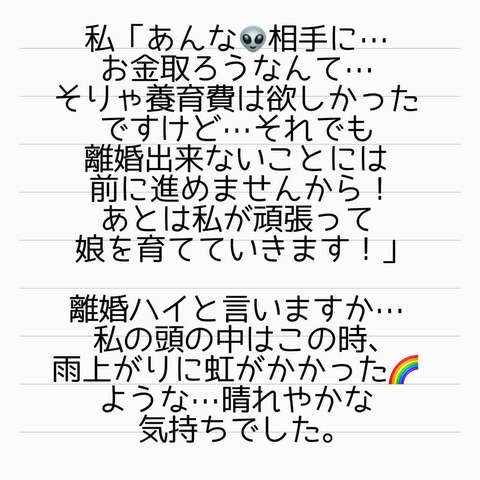 私「あんな👽相手に…
お金取ろうなんて…
そりゃ養育費は欲しかった
ですけど…それでも
離婚出来ないことには
前に進めませんから！
あとは私が頑張って
娘を育てていきます！」
離婚ハイと言いますか…
私の頭の中はこの時、
雨上がりに虹がかかった🌈
ような…晴れやかな
気持ちでした。